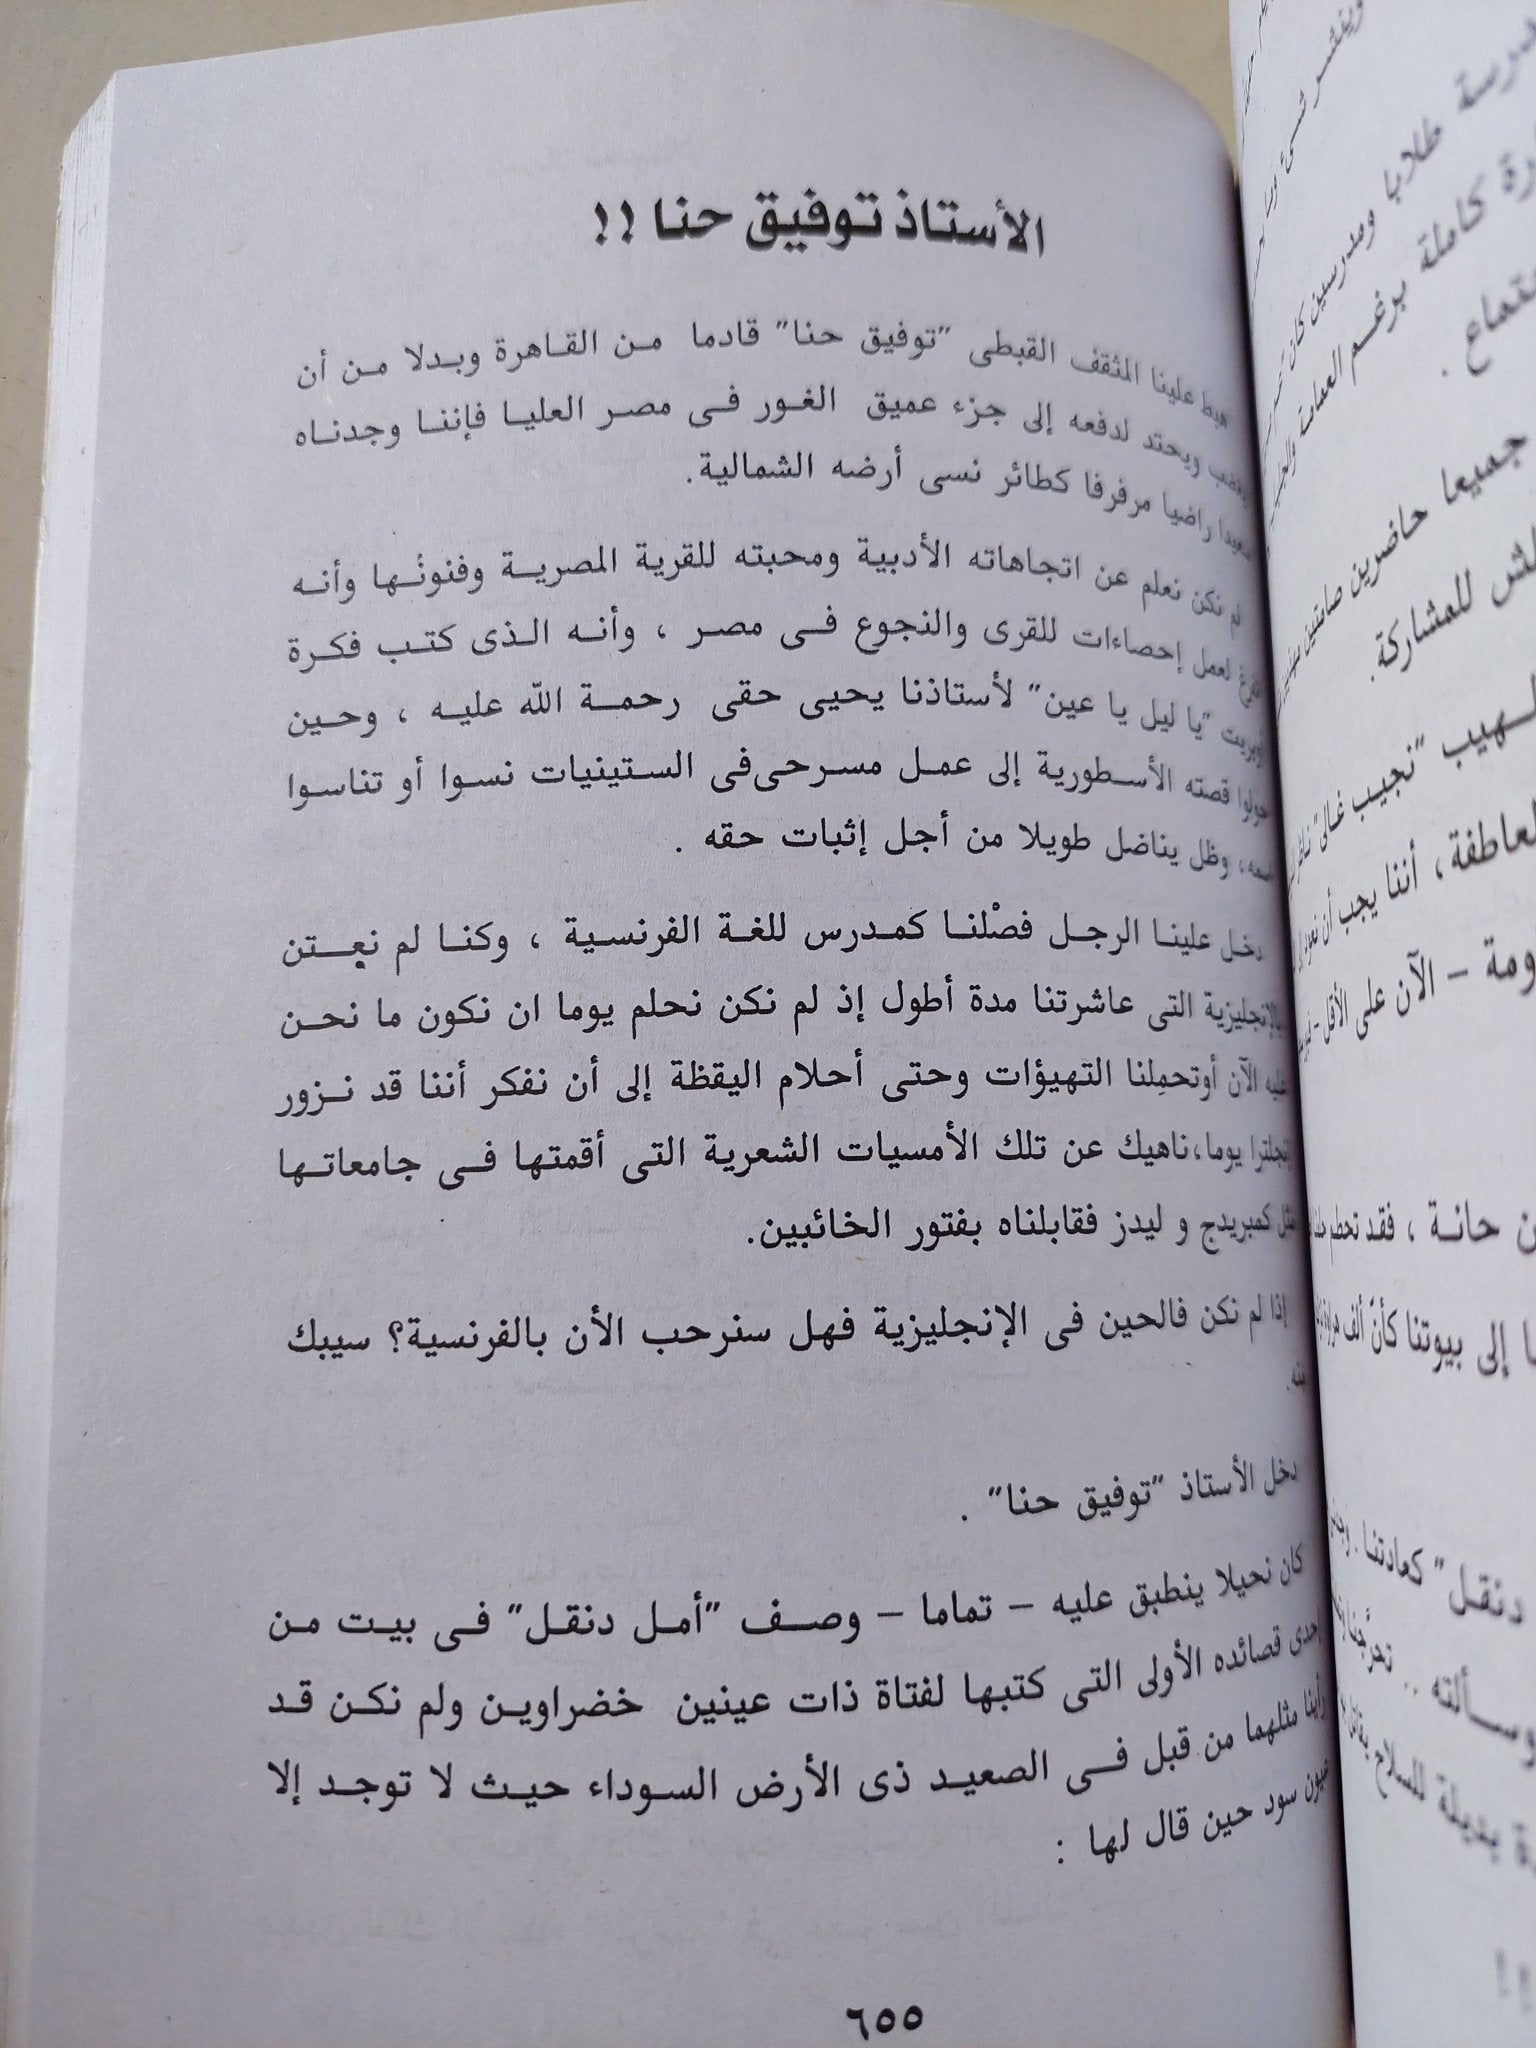 الأستاذ توفيق حنا !!
هبط علينا المثقف القبطى "توفيق حنا" قادما من القاهرة وبدلا من أن
يغضب ويحتد لدفعه إلى جزء عميق الغور فى مصر العليا فإننا وجدناه
سعيدا راضيا مرفرفا كطائر نسى أرضه الشمالية.
لم نكن نعلم عن اتجاهاته الأدبية ومحبته للقرية المصرية وفنونُها وأنه
تفرغ لعمل إحصاءات للقرى والنجوع فى مصر ، وأنه الذى كتب فكرة
أوبريت "يا ليل يا عين" لأستاذنا يحيى حقى رحمة الله عليه ، وحين
حولوا قصته الأسطورية إلى عمل مسرحى فى الستينيات نسوا أو تناسوا
اسمه، وظل يناضل طويلا من أجل إثبات حقه .
دخل علينا الرجل فصْلنا كمدرس للغة الفرنسية ، وكنا لم نعِتن
بالإنجليزية التى عاشرتنا مدة أطول إذ لم نكن نحلم يوما ان نكون ما نحن
عليه الآن أوتحمِلنا التهيؤات وحتى أحلام اليقظة إلى أن نفكر أننا قد نزور
إنجلترا يوما،ناهيك عن تلك الأمسيات الشعرية التى أقمتها فى جامعاتها
مثل كمبريدج و ليدز فقابلناه بفتور الخائبين.
إذا لم نكن فالحين فى الإنجليزية فهل سنرحب الأن بالفرنسية؟ سيبك
منه.
دخل الأستاذ "توفيق حنا" .
كان نحيلا ينطبق عليه – تماما – وصف "أمل دنقل" فى بيت من
إحدى قصائده الأولى التى كتبها لفتاة ذات عينين خضراوين ولم نكن قد
رأينا مثلهما من قبل فى الصعيد ذى الأرض السوداء حيث لا توجد إلا
عيون سود حين قال لها :
٦٥٥
درسة طلابا ومدرسين كان
رة كاملة برغم العمامة
جتماع .
جميعا حاضرين صامتين
للمشاركة.
لهيب "نجيب غالى"
لعاطفة ، أننا يجب أن نعود
ومة – الآن على الأقل –
ن حانة ، فقد تحطم
ا إلى بيوتنا كأنّ ألف
دنقل" كعادتنا.
وسألته ..
ة بديلة للسلاح